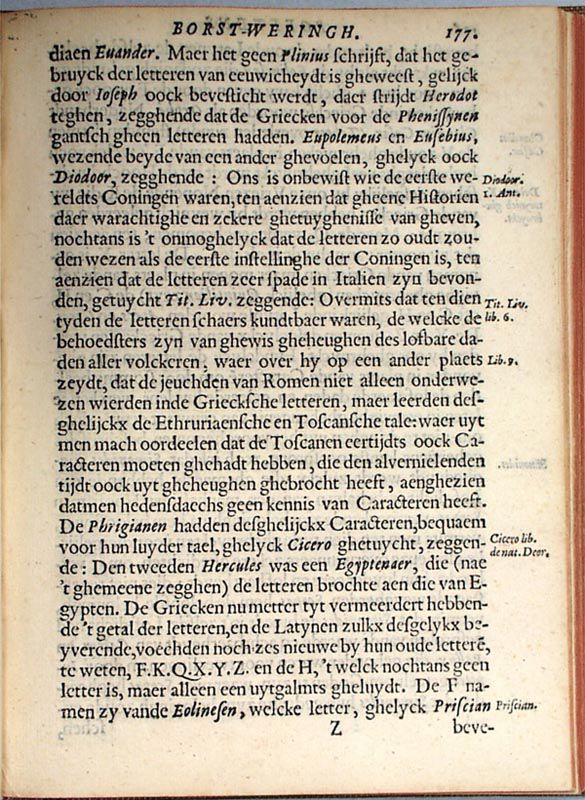 BORST-WERINGH. 177.
diaen Euander. Maer het geen Plinius ſchrijft, dat het ge-
bruyck der letteren van eeuwicheydt is gheweeſt, gelijck
door Ioſeph oock beveſticht werdt, daer ſtrijdt Herodot
teghen, zegghende dat de Griecken voor de Pheniſſynen
gantſch gheen letteren hadden. Eupolemeus en Euſebius,
wezende beyde van een ander ghevoelen, ghelyck oock
Diodoor, zegghende : Ons is onbewiſt wie de eerſte we- Diodoor.
reldts Coningen waren, ten aenzien dat gheene Hiſtorien 1. Ant.
daer warachtighe en zekere ghetuygheniſſe van gheven,
nochtans is 't onmoghelyck dat de letteren zo oudt zou-
den wezen als de eerſte inſtellinghe der Coningen is, ten
aenzien dat de letteren zeer ſpade in Italien zyn bevon-
den, getuycht Tit. Liv. zeggende: Overmits dat ten dien Tit. Liv.
tyden de letteren ſchaers kundtbaer waren, de welcke de lib. 6.
behoedſters zyn van ghewis gheheughen des lofbare da-
den aller volckeren; waer over hy op een ander plaets Lib. 9.
zeydt, dat de jeuchden van Romen niet alleen onderwe-
zen wierden inde Grieckſche letteren, maer leerden deſ-
ghelijckx de Ethruriaenſche en Toſcanſche tale: waer uyt
men mach oordeelen dat de Toſcanen eertijdts oock Ca-
racteren moeten ghehadt hebben, die den alvernielenden
tijdt oock uyt gheheughen ghebrocht heeft, aenghezien
datmen hedenſdaechs geen kennis van Caracteren heeft.
De Phrigianen hadden deſghelijckx Caracteren, bequaem
voor hun luyder tael, ghelyck Cicero ghetuycht, zeggen- Cicero lib.
de : Den tweeden Hercules was een Egyptenaer, die (nae de nat. Deor.
't ghemeene zegghen) de letteren brochte aen die van E-
gypten. De Griecken nu metter tyt vermeerdert hebben-
de 't getal der letteren, en de Latynen zulkx deſgelykx be-
yverende, voechden noch zes nieuwe by hun oude letterē,
te weten, F. K. Q. X. Y. Z. en de H, 't welck nochtans geen
letter is, maer alleen een uytgalmts gheluydt. De F na-
men zy vande Eolineſen, welcke letter, ghelyck Priſcian Priſcian.
Z beve-